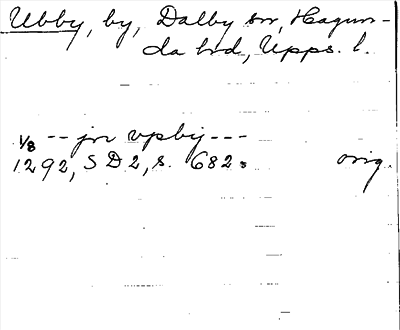 Ubby, by, Dalby sn, Hagun-
da hd, Upps. l.
1/8 -- jn vpbij ---
1292, SD 2, s. 682. orig.